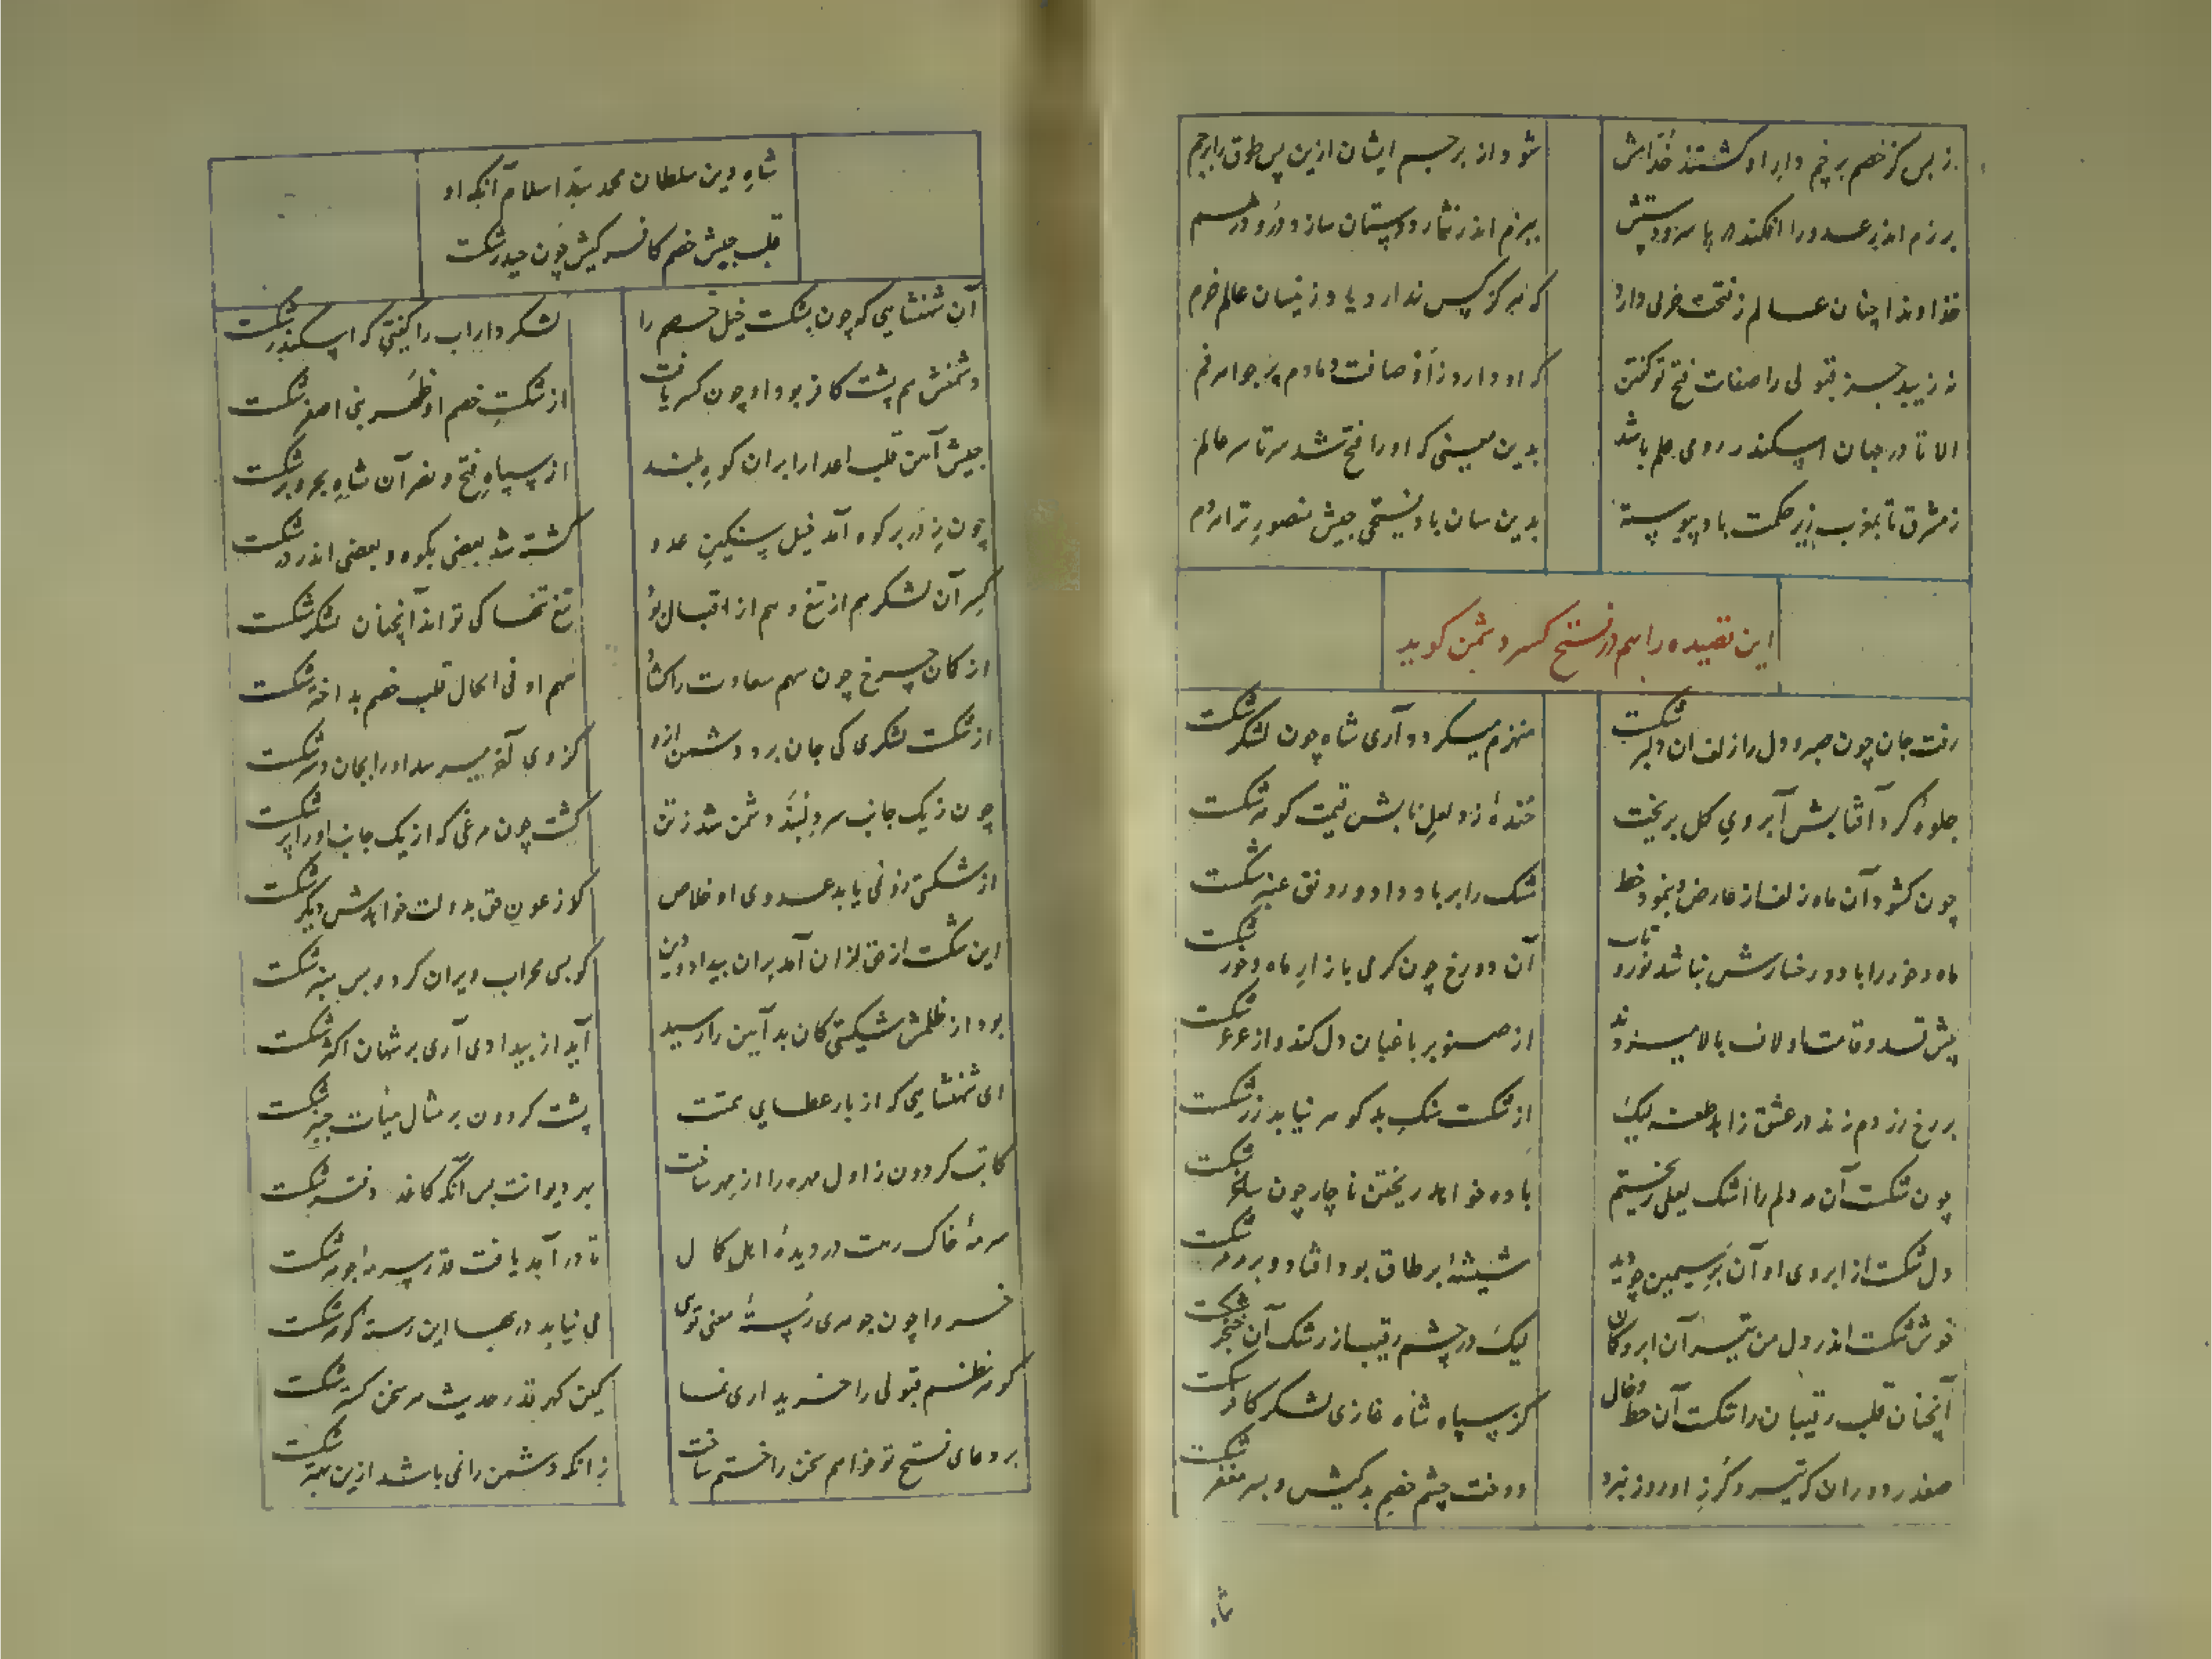 ز بس کز خصم پر خم دابر او کشتند خدامش
شود از بر جسم ایشان ازین پس طوق را پرچم
برزم اندر عدو را افکند در پا سر و دستش
ببزم اندر نثار دوستان سازد در و درهم
خداوندا چنان عالم ز فتحت خرمی دارد
که هرگز کس ندارد یاد زینسان عالم خرم
نه زیبد جز قبولی را صفات فتح تو گفتن
که او دارد ز اوصافت دمادم پر جواهر فم
الا تا در جهان اسکندر رومی علم باشد
بدین معنی که او را فتح شد سر تا سر عالم
ز مشرق تا بمغرب زیر حکمت باد پیوسته
بدین سان باد بستی جیش منصور ترا هر دم
این قصیده را هم در فتح کسر دشمن کوید
رفت جان چون صبر و دل را زلف ان دلبر شکست
منهزم میکردد آری شاه چون لشکر شکست
جلوه کرد آفتابش آبروی کل بریخت
خنده زد لعل نابش قیمت کوهر شکست
چون کشود آن ماه زلف از عارض و بنمود خط
مشک را بر باد داد و رونق عنبر شکست
ماه و خور را با دو رخسارش نباشد نور و تاب
آن دو رخ چون کرمی بازار ماه و خور شکست
پیش قد و قامتت او لاف بالا میزدند
از صنوبر باغبان دل کند و از عرعر شکست
بر رخ زردم زند در عشق زاهد طعنه لیک
از شکست سنک بد کوهر نیابد زر شکست
چون شکست آن مه دلم را اشک لعلی ریختم
باده خواهد ریختن ناچار چون ساغر شکست
دل شکست از ابروی او آن بر سیمین چو دید
شیشه بر طاق بود افتاد و بر مرمر شکست
خوش شکست اندر دل من تیر آن ابرو کمان
لیک در چشم رقیب از رشک آن خنجر شکست
آنچنان قلب رقیبان را شکست آن خط و خال
کز سپاه شاه غازی لشکر کافر شکست
صفدر دوران که تیر و کرز او روز نبرد
دوخت چشم خصم بدکیش و سر مغفر شکست
شاه
شاه دین سلطان محمد سید اسلام آنکه او
قلب جیش خصم کافر کیش چون حیدر شکست
آن شهنشاهی که چون بشکست خیل خصم را
لشکر داراب را کفتی که اسکندر شکست
دشمنش هم پشت کافر بود او چون کسر یافت
از شکست خصم او ظهر بنی اصفر شکست
جیش آهن قلب اعدا را بران کوه بلند
از سپاه فتح و نصر آن شاه بحر و بر شکست
چون بزور بر کوه آمد خیل سنکین عدو
کشته شد بعضی بکوه و بعضی اندر در شکست
کسر آن لشکر هم از تیغ و هم از اقبال بود
تیغ تنها کی تواند آنچنان لشکر شکست
از کمان چرخ چون سهم سعادت را کشاد
سهم او فی الحال قلب خصم بد اختر شکست
از شکست لشکری کی جان برد دشمن ازو
کز وی آخر میرسد او را بجان و سر شکست
چون ز یک جانب سر و بند دشمن شد ز تن
کشت چون مرغی که از یک جانب او را پر شکست
از شکستن زو نمی یابد عدوی او خلاص
کو ز عون حق بدولت خواهدش دیکر شکست
این شکست از حق از ان آمد بران بیداد و دین
کو بسی محراب ویران کرد و بس منبر شکست
بود از ظلمش شکستی کان بد آیین را رسید
آید از بیدادی آری بر شهان اکثر شکست
ای شهنشاهی که از بار عطای همتت
پشت کردون بر مثال چنبر شکست
کاتب کردون ز اول مهره را از مهر ساخت
بهر دیوانت پس آنکه کاغذ دفتر شکست
سرمه خاک رهت در دیده اهل کمال
تا در آمد یافت قدر سرمه
خسروا چون جوهری رسته معنی توی
می نیابد در بها این رسته کوهر شکست
کوهر نظم قبولی را خریداری نما
کین کهر قدر حدیث هر سخن کستر شکست
بر دعای فتح تو خواهم سخن را ختم ساخت
زانکه دشمن را نمی باشد ازین بهتر شکست